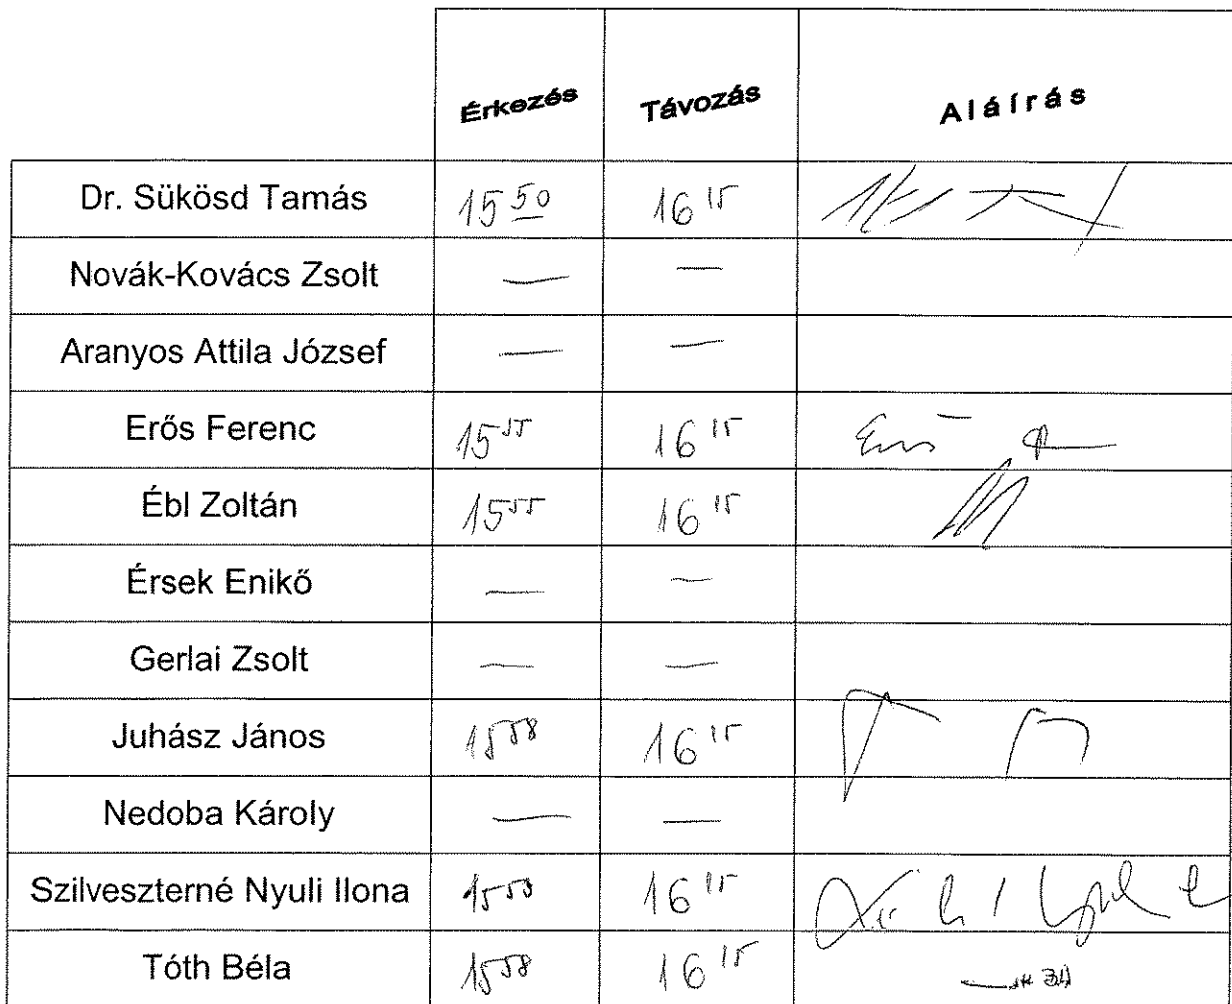 Érkezés Távozás Aláírás
Dr. Sükösd Tamás 15 50 16 15
Novák-Kovács Zsolt — —
Aranyos Attila József — —
Erős Ferenc 15 55 16 15
Ébl Zoltán 15 55 16 15
Érsek Enikő — —
Gerlai Zsolt — —
Juhász János 15 58 16 15
Nedoba Károly — —
Szilveszterné Nyuli Ilona 16 15
Tóth Béla 15 58 16 15